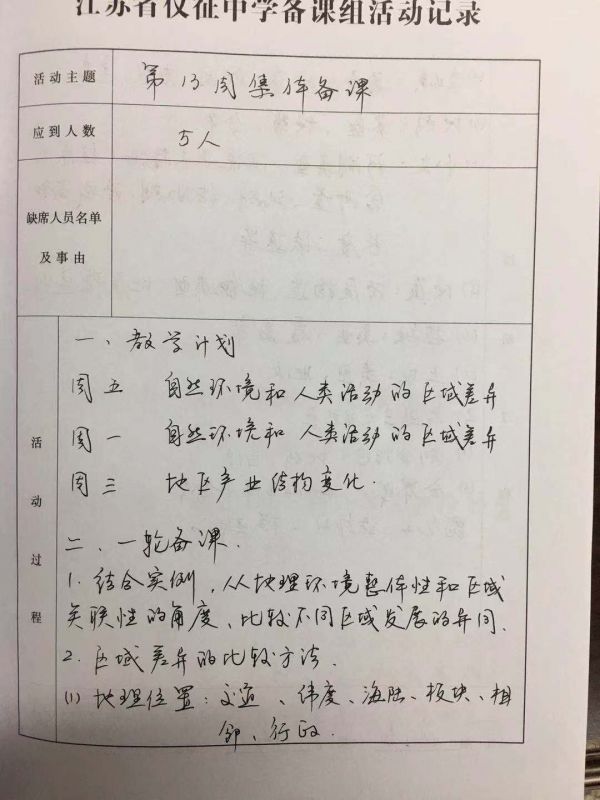 江苏省仪征中学备课组活动记录
活动主题 第13周集体备课
应到人数 5人
缺席人员名单
及事由
活动过程
一、教学计划
周五 自然环境和人类活动的区域差异
周一 自然环境和人类活动的区域差异
周三 地区产业结构变化.
二、一轮备课.
1. 结合实例,从地理环境整体性和区域
关联性的角度、比较不同区域发展的异同.
2. 区域差异的比较方法.
(1) 地理位置:交通、纬度、海陆、板块、相
邻、行政.